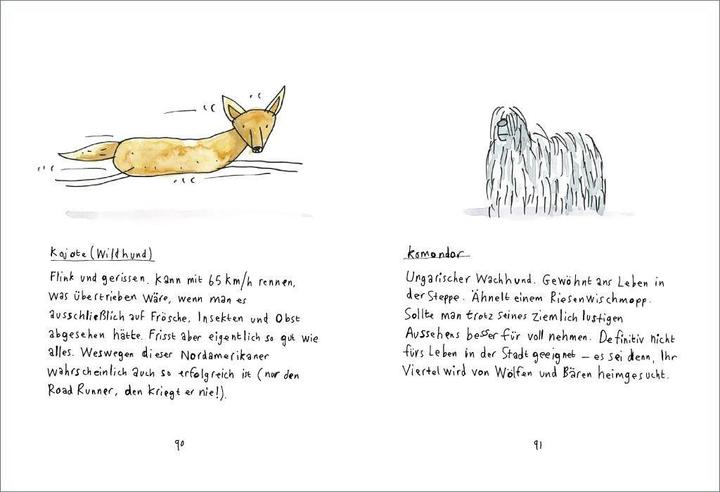 Kojote (Wildhund)
Flink und gerissen. Kann mit 65 km/h rennen,
was übertrieben wäre, wenn man es
ausschließlich auf Frösche, Insekten und Obst
abgesehen hätte. Frisst aber eigentlich so gut wie
alles. Weswegen dieser Nordamerikaner
wahrscheinlich auch so erfolgreich ist (nur den
Road Runner, den kriegt er nie!).
90
Komondor
Ungarischer Wachhund. Gewöhnt ans Leben in
der Steppe. Ähnelt einem Riesenwischmopp.
Sollte man trotz seines ziemlich lustigen
Aussehens besser für voll nehmen. Definitiv nicht
fürs Leben in der Stadt geeignet – es sei denn, Ihr
Viertel wird von Wölfen und Bären heimgesucht.
91